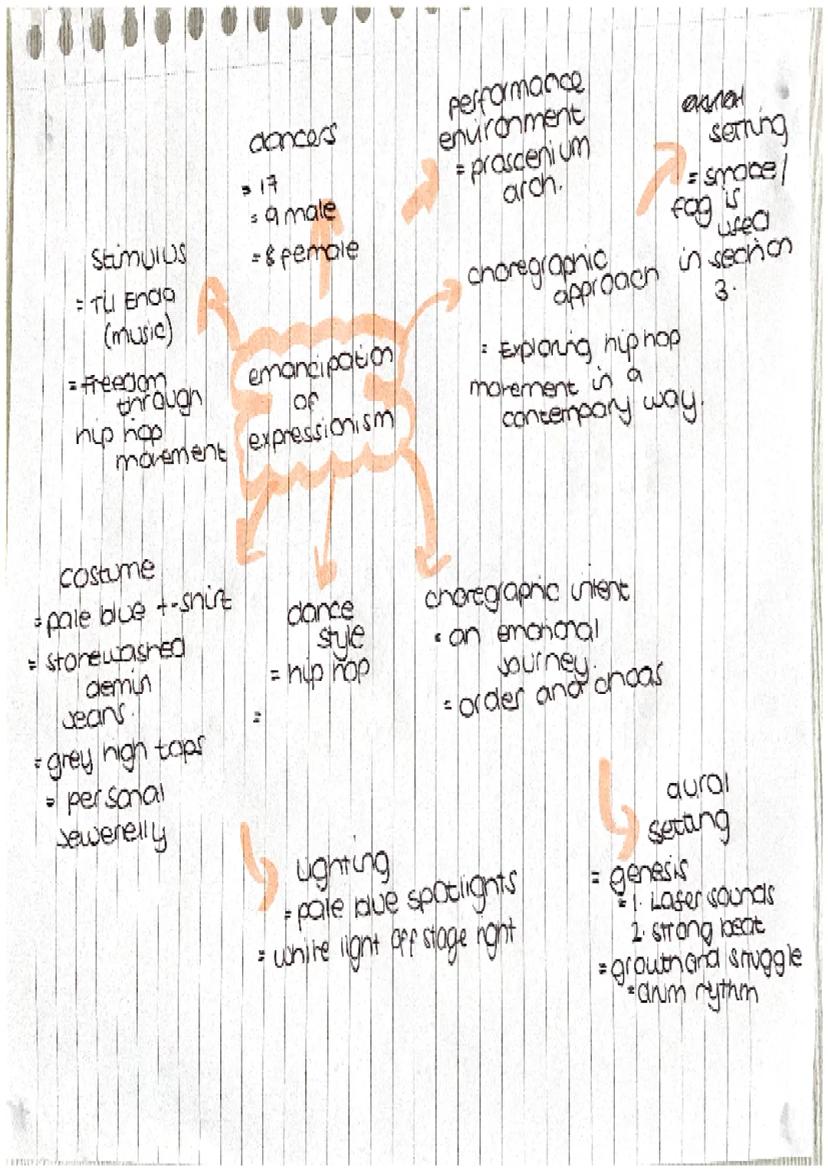 performance
environment
= proscenium
arch.
setting
= smoke/
fog is
used
in section
3.
dancers
= 17
= 9 male
= 8 female
Stimulus
= TU Endo
(music)
= freedom
through
hip hop
movement
choregraphic
approach
= Exploring hip hop
movement in a
contempary way.
emancipation
of
expressionism
costume
= pale blue t-shirt
= stonewashed
demin
jeans.
= grey high tops
= personal
jewerelly
dance
style
= hip hop
=
choregraphic intent
= an emotional
journey.
= order and choas
Lighting
= pale blue spotlights
= white light off stage right
aural
setting
= genesis
= 1. Laser sounds
2. strong beat
= growth and struggle
= drum rythm